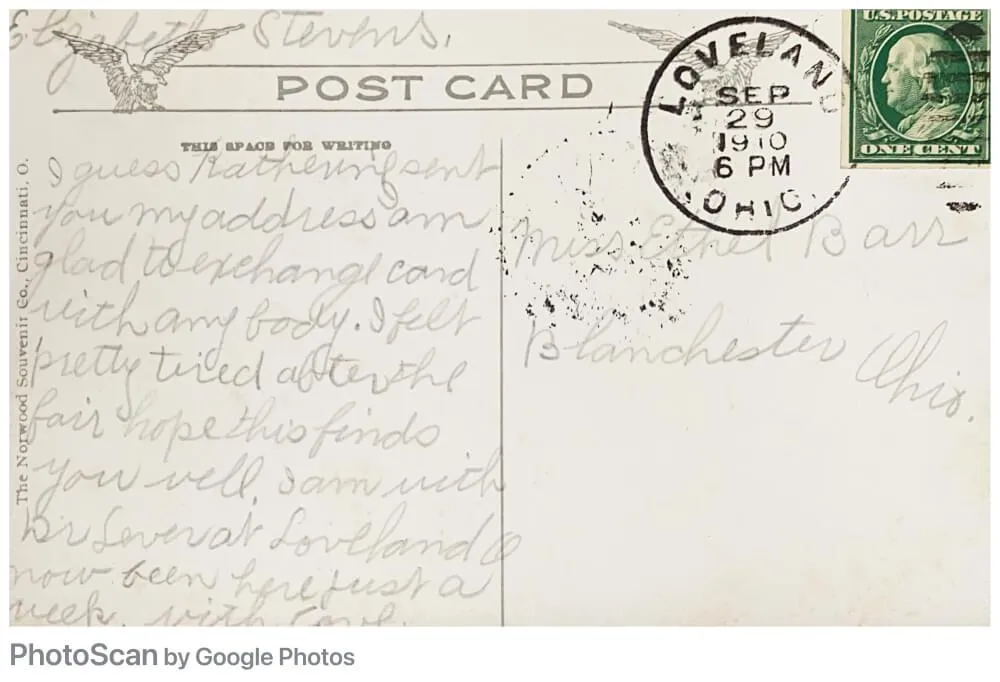 Elizabeth Stevens.
POST CARD
THIS SPACE FOR WRITING
I guess Katherine sent
you my address am
glad to exchange card
with any body. I felt
pretty tired after the
fair hope this finds
you well, I am with
Dr Lever at Loveland O
now been here just a
week. with
The Norwood Souvenir Co., Cincinnati, O.
LOVELAND
SEP
29
1910
6 PM
OHIO.
U.S. POSTAGE
ONE CENT
Miss Ethel Barr
Blanchester Ohio.
PhotoScan by Google Photos